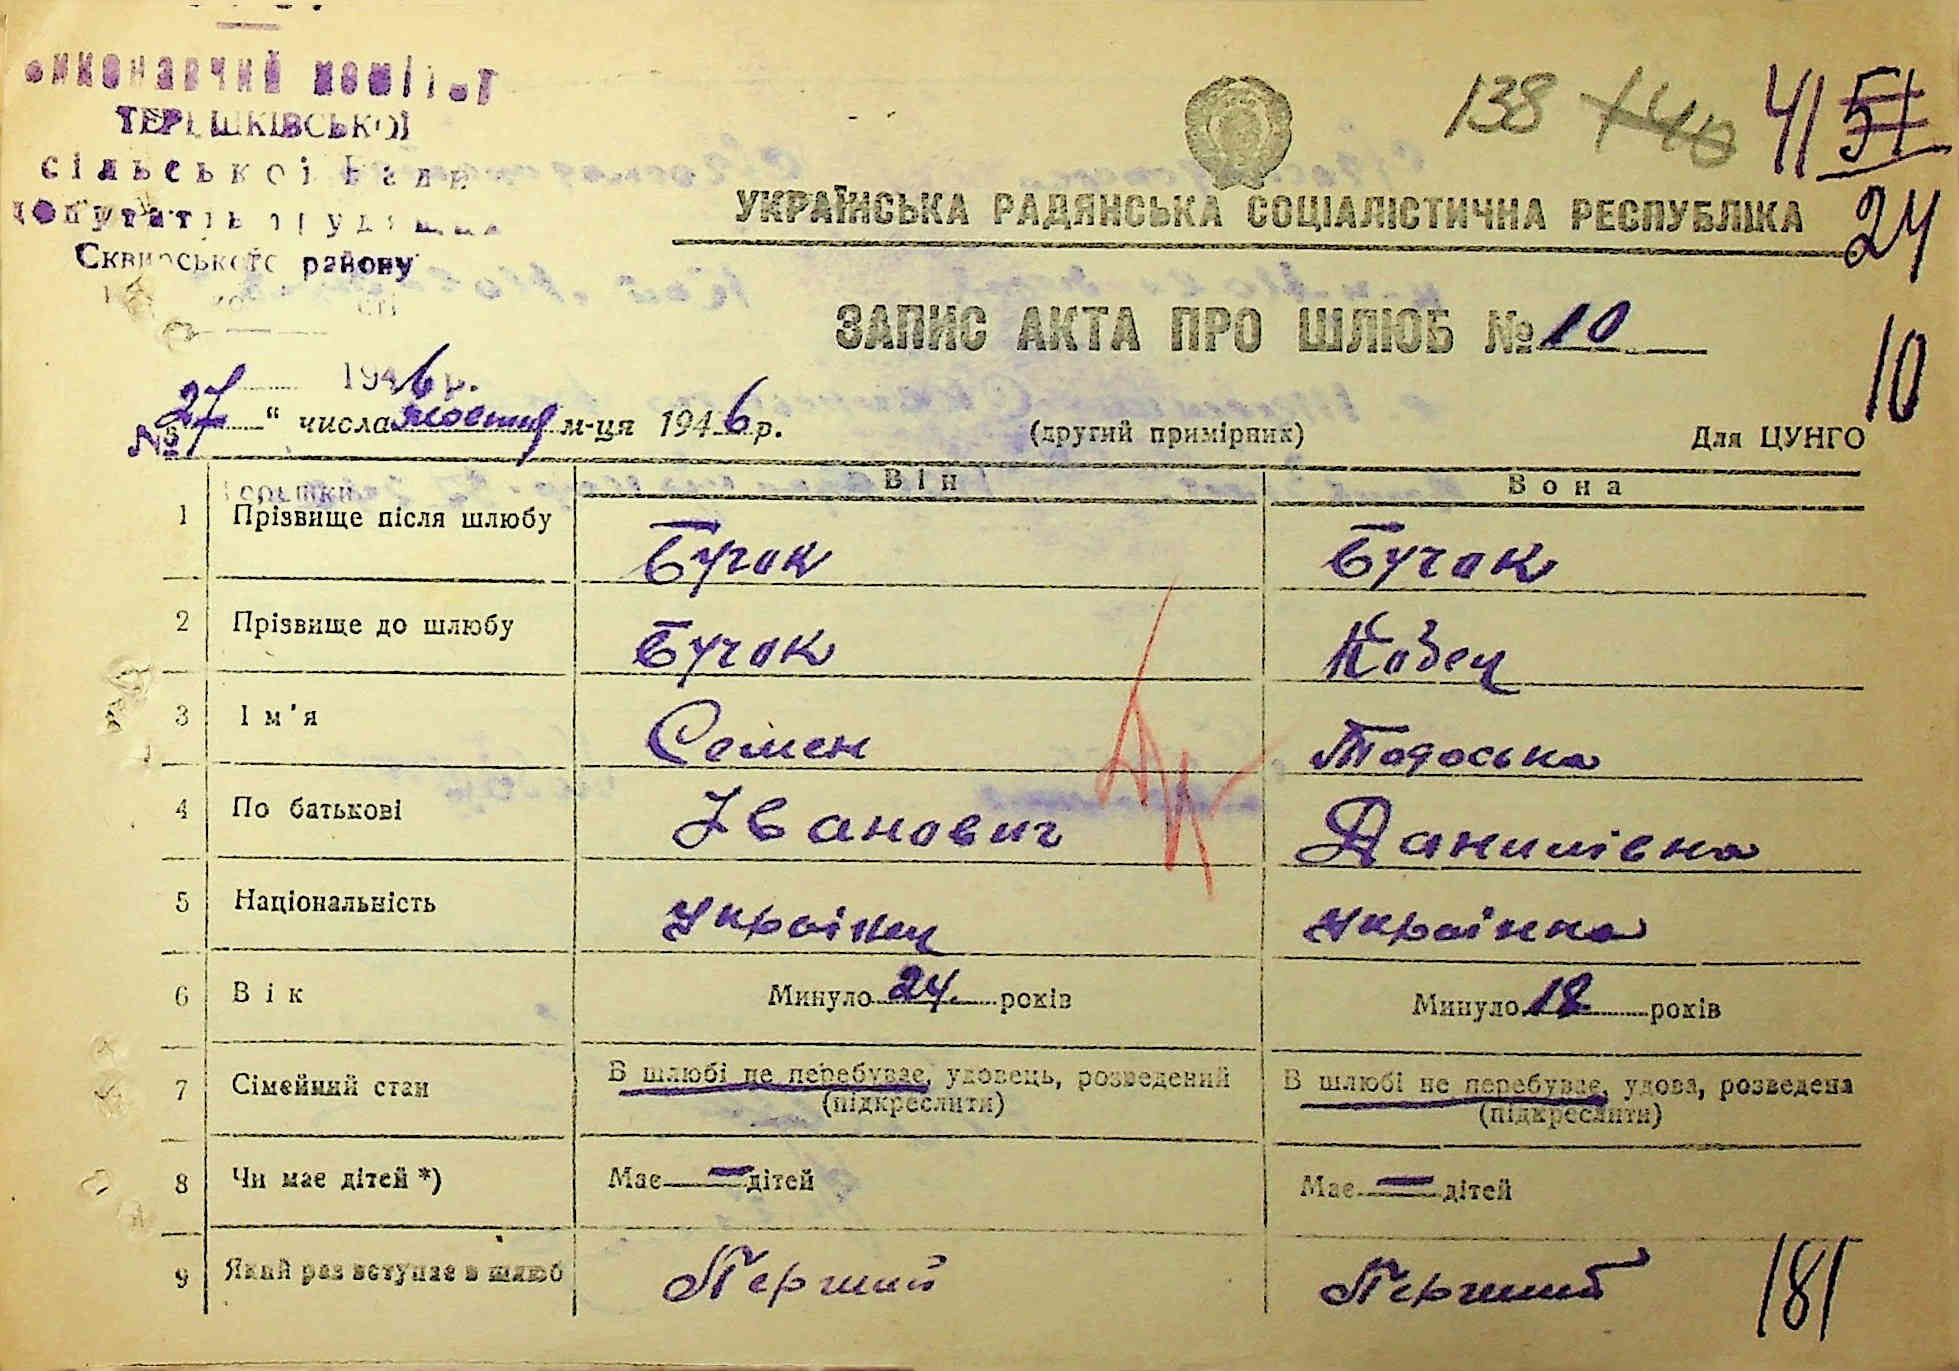 виконавчий комітет
ТЕРЕШКІВСЬКОЇ
сільської Ради
депутатів трудящих
Сквирського району
138 140 41 51
24
10
УКРАЇНСЬКА РАДЯНСЬКА СОЦІАЛІСТИЧНА РЕСПУБЛІКА
ЗАПИС АКТА ПРО ШЛЮБ № 10
1946 р.
№ 27 " числа жовтня м-ця 1946 р.
(другий примірник)
Для ЦУНГО
Він Вона
1 Прізвище після шлюбу Бучак Бучак
2 Прізвище до шлюбу Бучак Кобец
3 Ім'я Семен Тодоська
4 По батькові Іванович Данилівна
5 Національність українец українка
6 Вік Минуло 24 років Минуло 18 років
7 Сімейний стан В шлюбі не перебуває, удовець, розведений В шлюбі не перебуває, удова, розведена
(підкреслити) (підкреслити)
8 Чи має дітей *) Має — дітей Має — дітей
9 Який раз вступає в шлюб Перший Перший
181